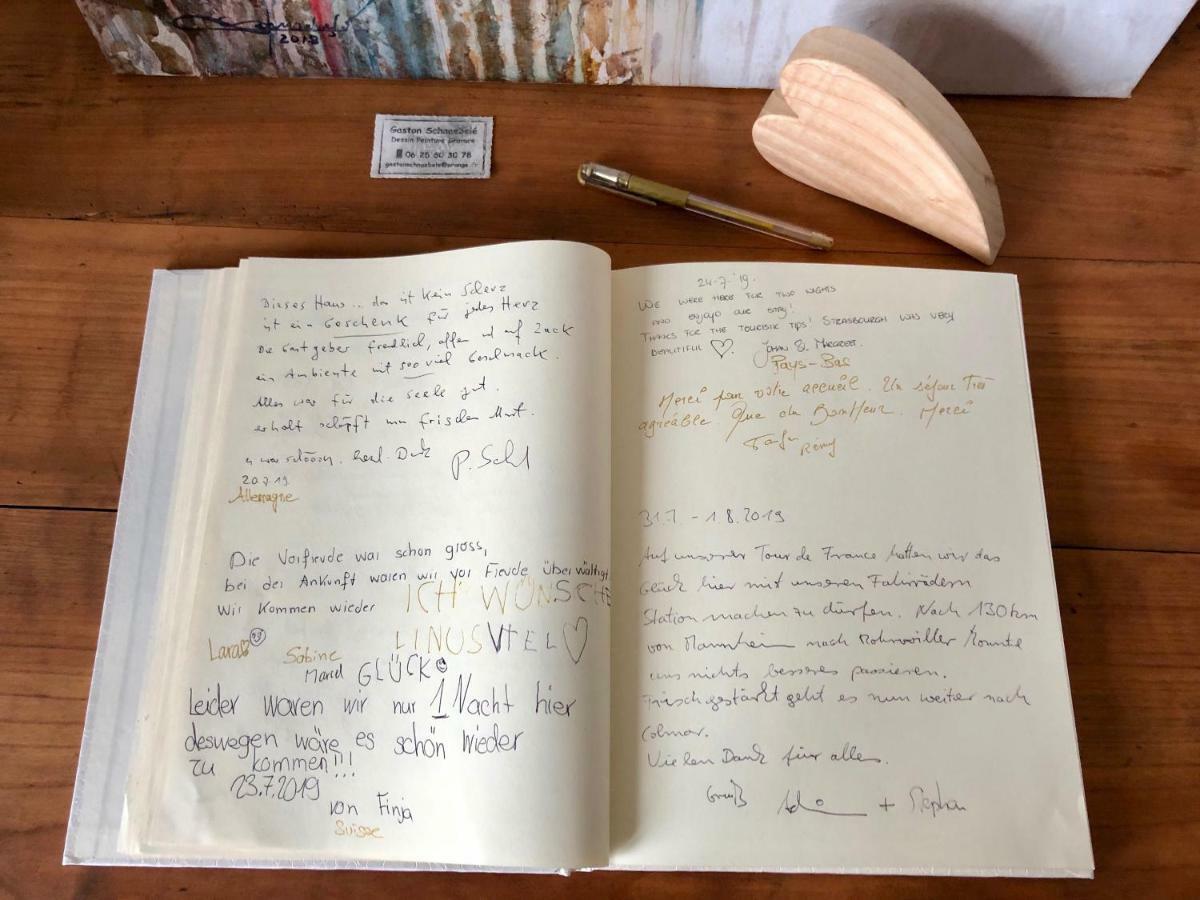 2018
Gaston Schnoebelé
Dessin Peinture Gravure
06 25 60 30 78
Dieses Haus .. das ist kein Scherz
ist ein Geschenk für jedes Herz
Die Gastgeber freundlich, offen und auf Zack
ein Ambiente mit soo viel Geschmack.
Alles war für die Seele gut.
erholt schöpft man frischen Mut.
es war schöön. herzl. Dank
20.7.19
Allemagne
Die Vorfreude war schon gross,
bei der Ankunft waren wir vor Freude überwältigt
Wir kommen wieder
ICH WÜNSCHE
LINUS VIEL ♡
GLÜCK
Lara
Sabine
Marcel
Leider waren wir nur 1 Nacht hier
deswegen wäre es schön wieder
zu kommen!!!
23.7.2019
von Finja
Suisse
24-7-'19.
WE WERE HERE FOR TWO NIGHTS
AND ENJOYD OUR STAY!
THANKS FOR THE TOURISTIK TIPS! STRASBOURG WAS VERY
BEAUTIFUL ♡. JOHAN & MARGREET.
Pays-Bas
Merci pour votre accueil. Un séjour Très
agréable. Que du Bonheur. Merci
Rémy
31.7. - 1.8.2019
Auf unserer Tour de France hatten wir das
Glück hier mit unseren Fahrrädern
Station machen zu dürfen. Nach 130 km
von Mannheim nach Rohrwiller konnte
uns nichts besseres passieren.
Frisch gestärkt geht es nun weiter nach
Colmar.
Vielen Dank für alles.
Gruß + Stephan